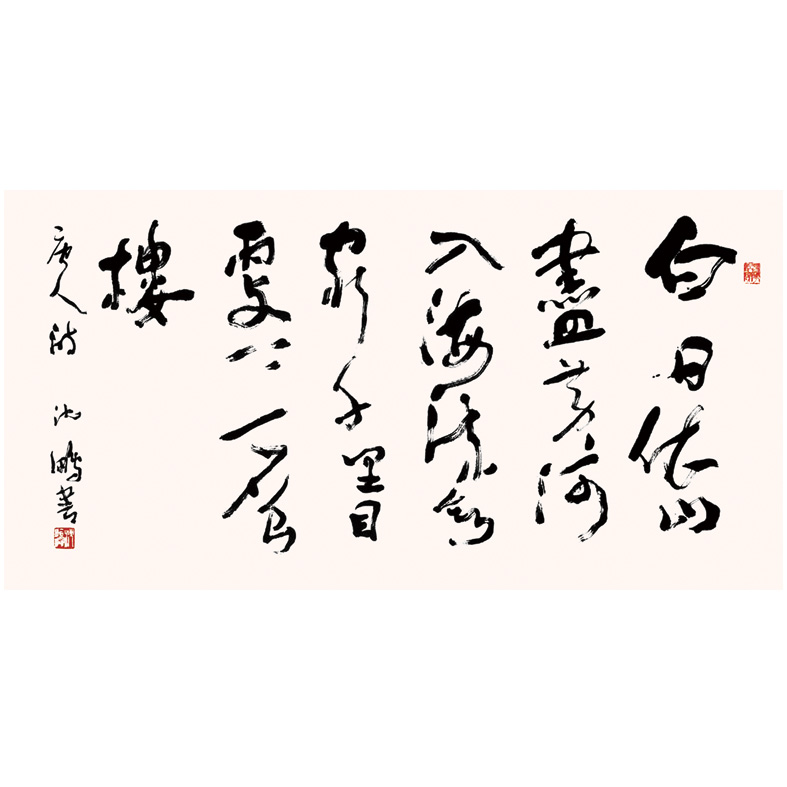 白日依山
盡黃河
入海流欲
窮千里目
更上一層
樓
唐人詩 沈鵬書